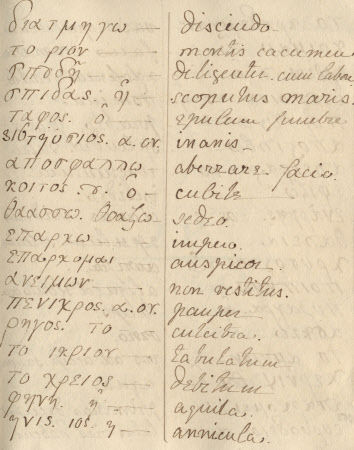 διατμηγω discindo.
το ριον montis cacumen
σποδη diligenter. cum labore
σπιδας. ἡ scopulus maris.
ταφος. ὁ epulum funebre
σιος. α. ον. inanis
αποσφαλλω aberrare facio.
κοιτος. ου. ὁ cubile
θαασσω. θοαζω sedeo.
επαρχω impero.
επαρχομαι auspicor.
ανειμων non vestitus.
πενιχρος. α. ον. pauper
ρηγος. το culcitra.
το ικριον tabulatum
το χρειος debitum
φηνη. ἡ aquila.
ηνις. ιος. ἡ annicula.